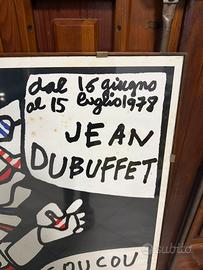 dal 16 giugno
al 15 luglio 1978
JEAN
DUBUFFET
COUCOU
subito